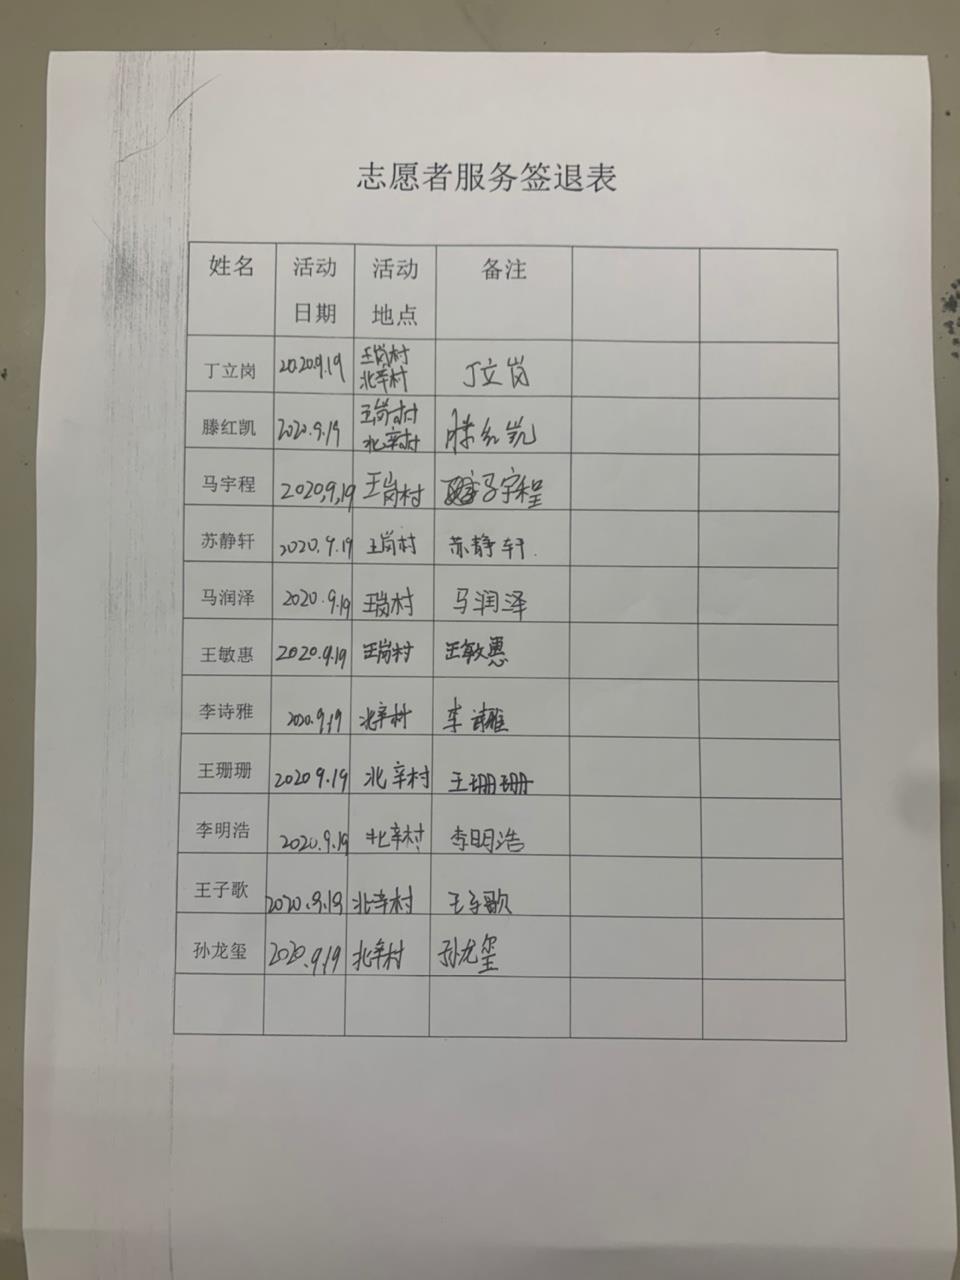 志愿者服务签退表
姓名 活动日期 活动地点 备注
丁立岗 2020.9.19 王岗村 北辛村 丁立岗
滕红凯 2020.9.19 王岗村 北辛村 滕红凯
马宇程 2020,9,19 王岗村 马宇程
苏静轩 2020.9.19 王岗村 苏静轩.
马润泽 2020.9.19 王岗村 马润泽
王敏惠 2020.9.19 王岗村 王敏惠
李诗雅 2020.9.19 北辛村 李诗雅
王珊珊 2020 9.19 北辛村 王珊珊
李明浩 2020.9.19 北辛村 李明浩
王子歌 2020.9.19 北辛村 王子歌
孙龙玺 2020.9.19 北辛村 孙龙玺